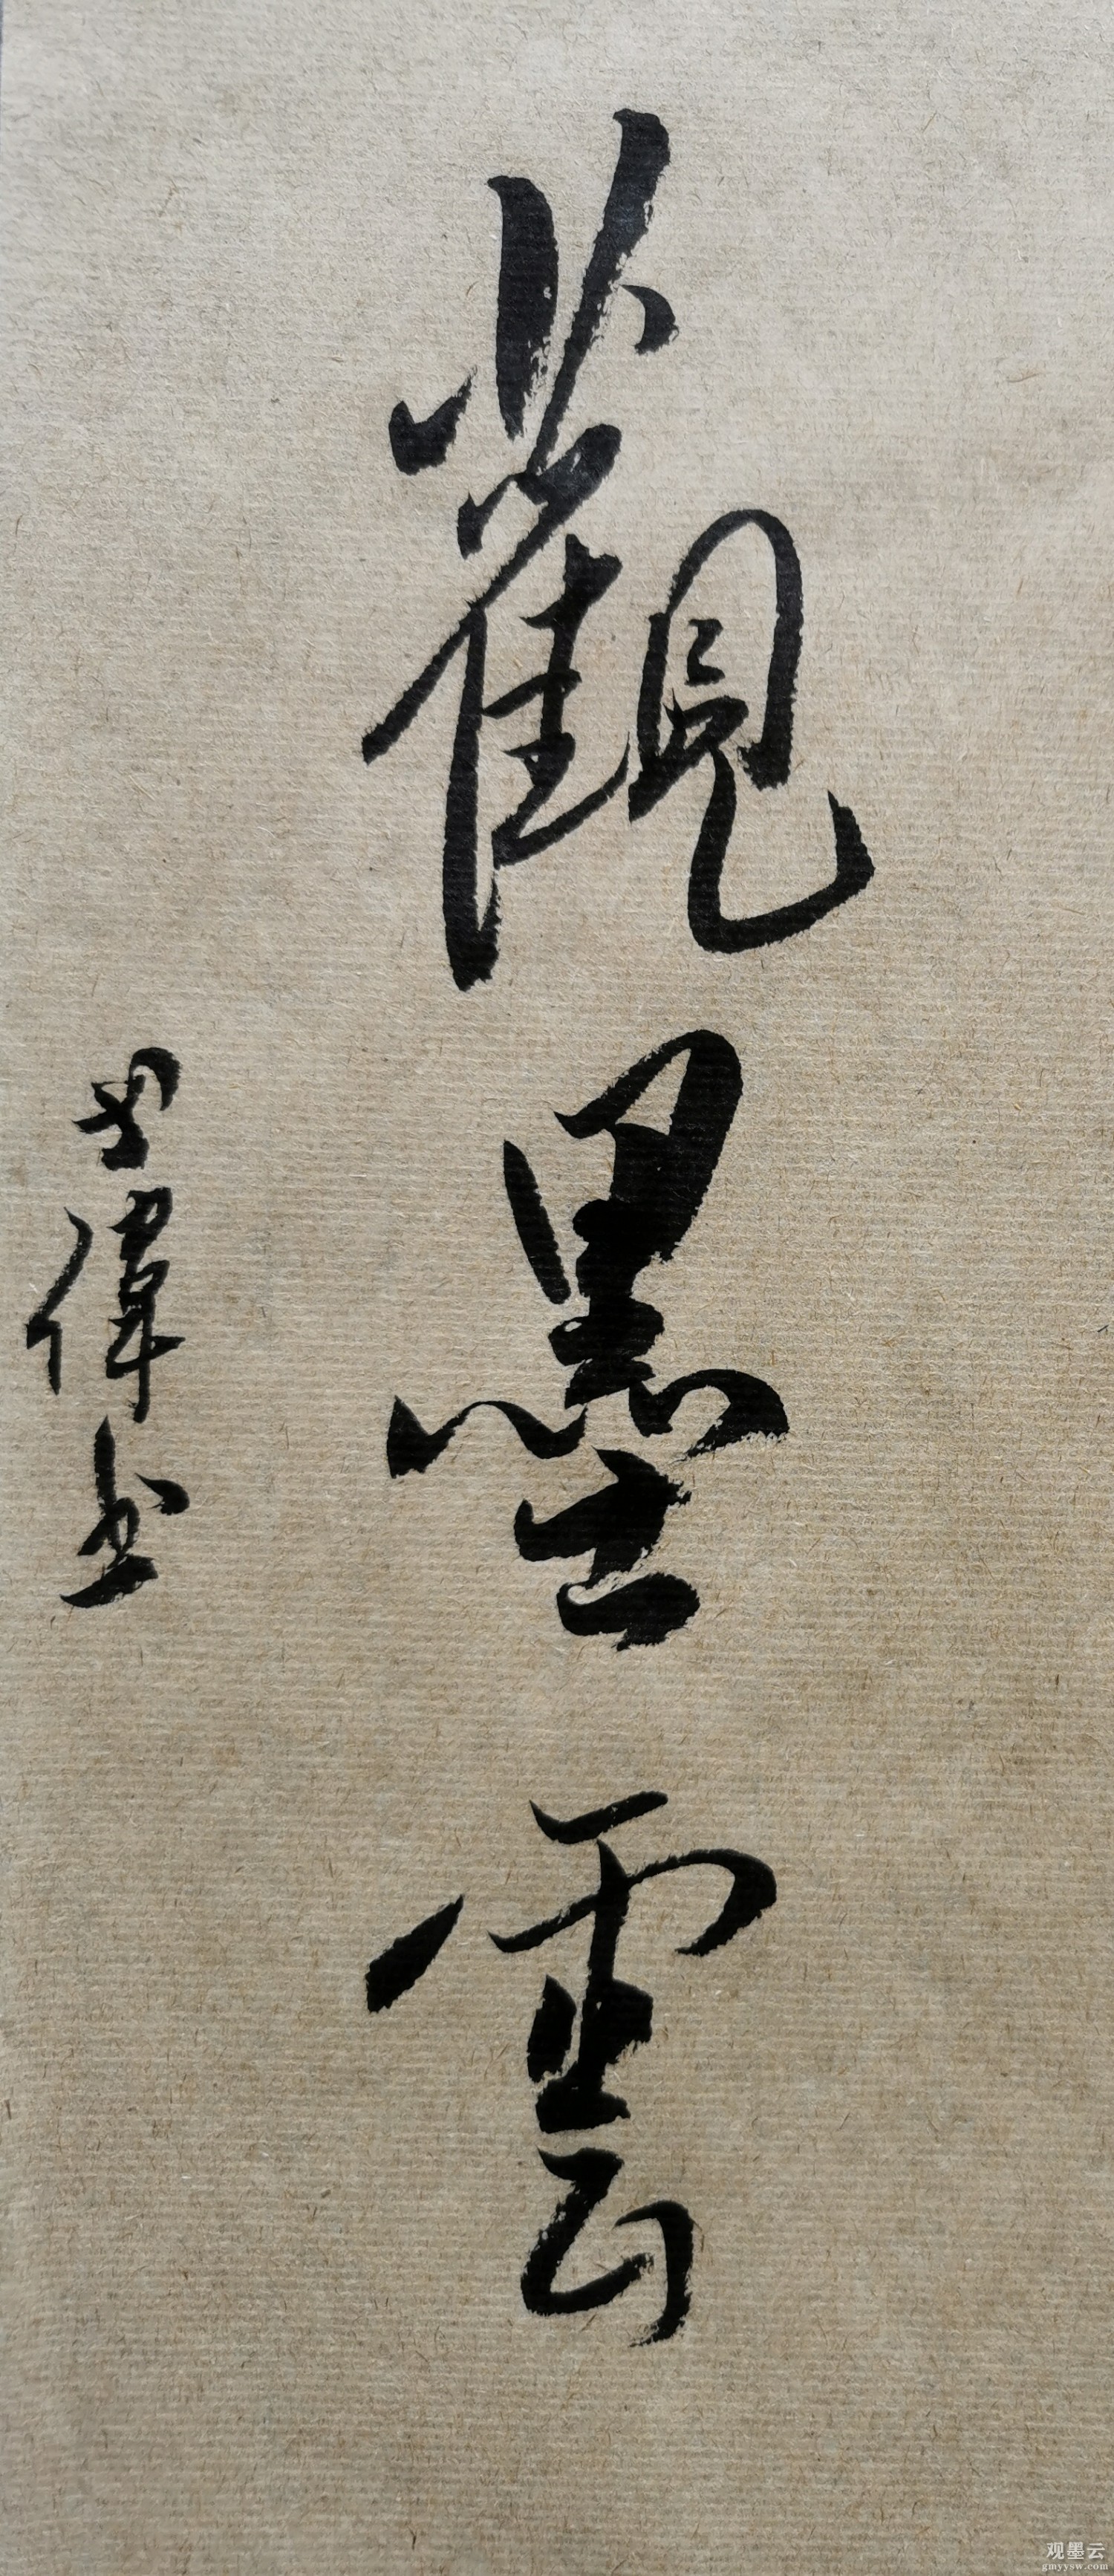 觀墨雲
偉书
观墨云
gmyysw.com